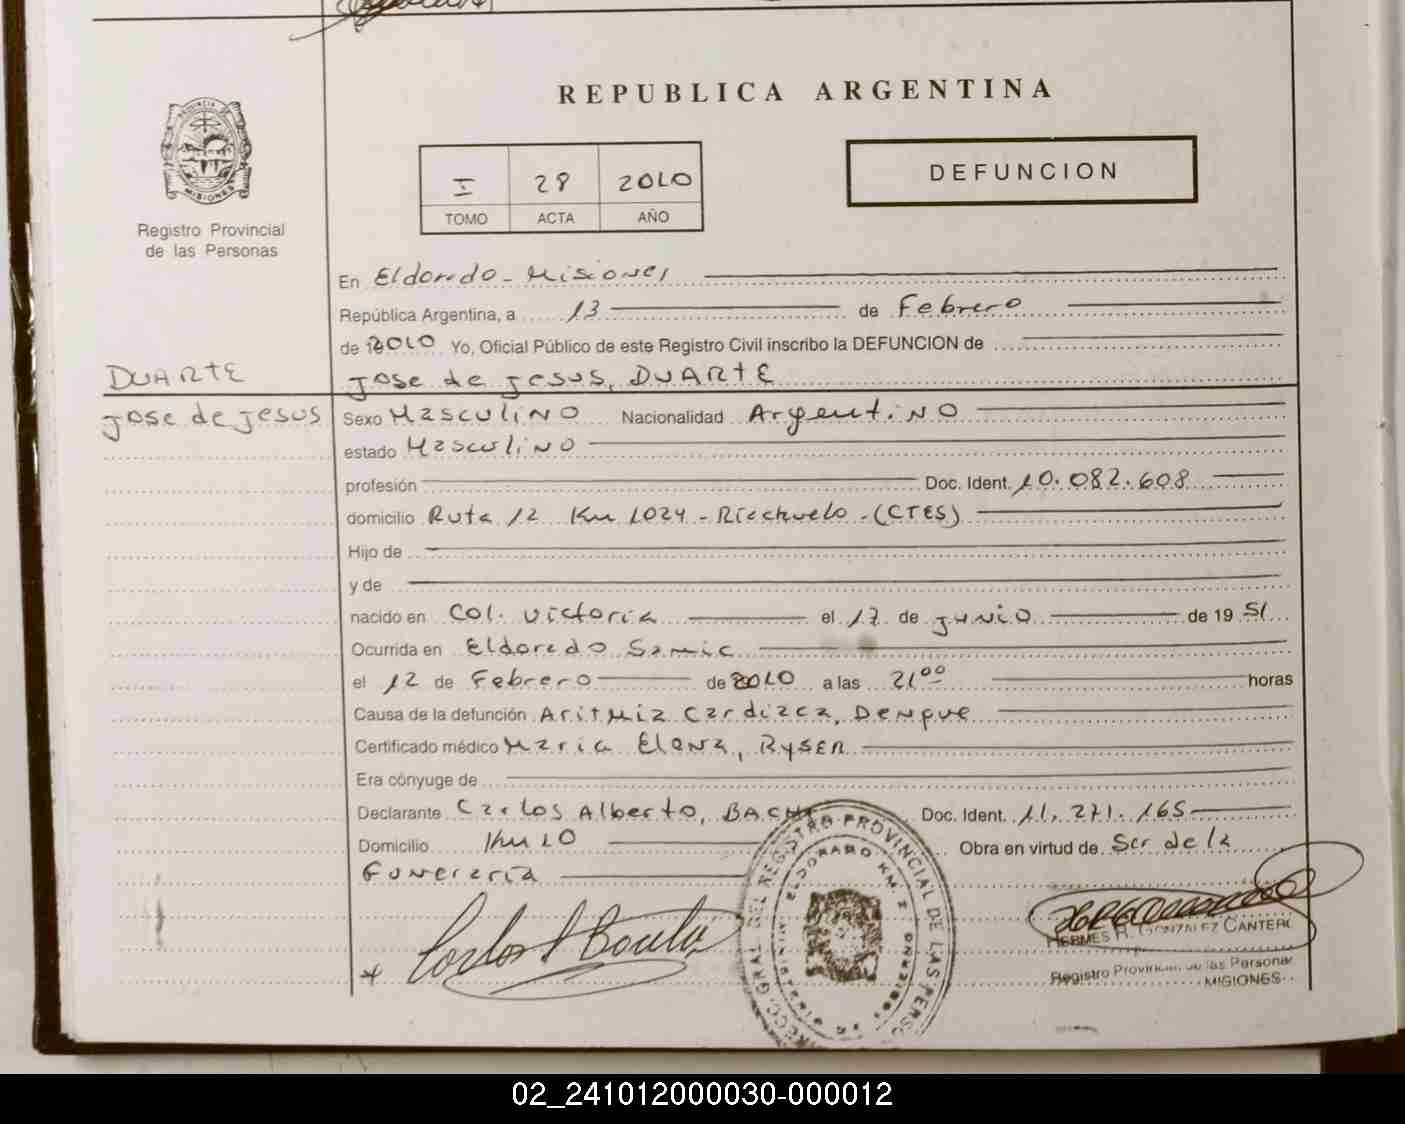 REPUBLICA ARGENTINA
I 28 2010
TOMO ACTA AÑO
DEFUNCION
MISIONES
Registro Provincial
de las Personas
DUARTE
Jose de Jesus
En Eldorado - Misiones
República Argentina, a 13 de Febrero
de 2010 Yo, Oficial Público de este Registro Civil inscribo la DEFUNCION de
Jose de Jesus, DUARTE
Sexo Masculino Nacionalidad Argentino
estado Masculino
profesión Doc. Ident. 10.082.608
domicilio Ruta 12 Km 1024 - Riachuelo - (CTES)
Hijo de
y de
nacido en Col. Victoria el 17 de Junio de 19 51
Ocurrida en Eldorado Samic
el 12 de Febrero de 2010 a las 21 00 horas
Causa de la defunción Aritmia Cardiaca, Dengue
Certificado médico Maria Elena, Rysen
Era cónyuge de
Declarante Carlos Alberto, Doc. Ident. 11.271.165
Domicilio Km 10 Obra en virtud de Ser de la
Funeraria
HERMES R. GONZALEZ CANTERO
Registro Provincial de las Personas
MISIONES
GRAL DEL REGISTRO PROVINCIAL DE LAS PERSO
ELDORADO KM 2
02_241012000030-000012